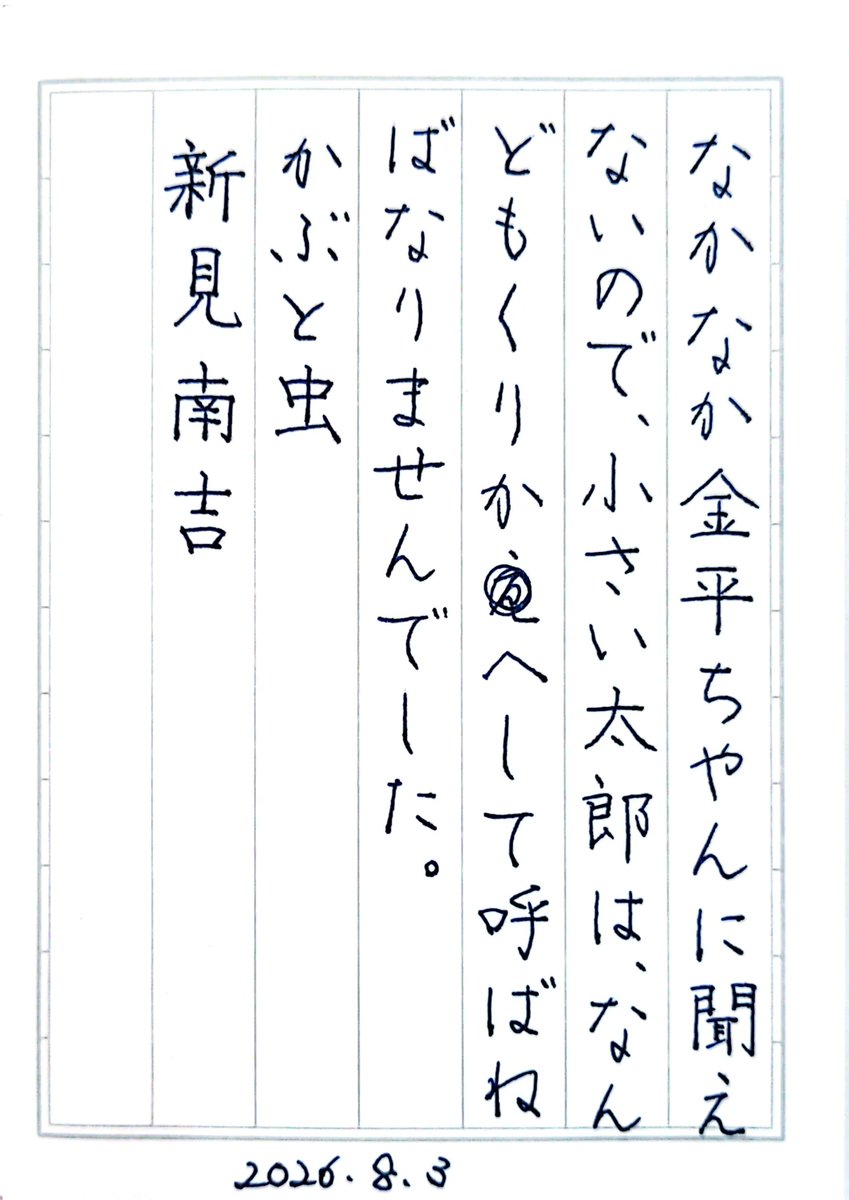 なかなか金平ちゃんに聞え
ないので、小さい太郎は、なん
どもくりかへして呼ばね
ばなりませんでした。
かぶと虫
新見南吉
2026.8.3